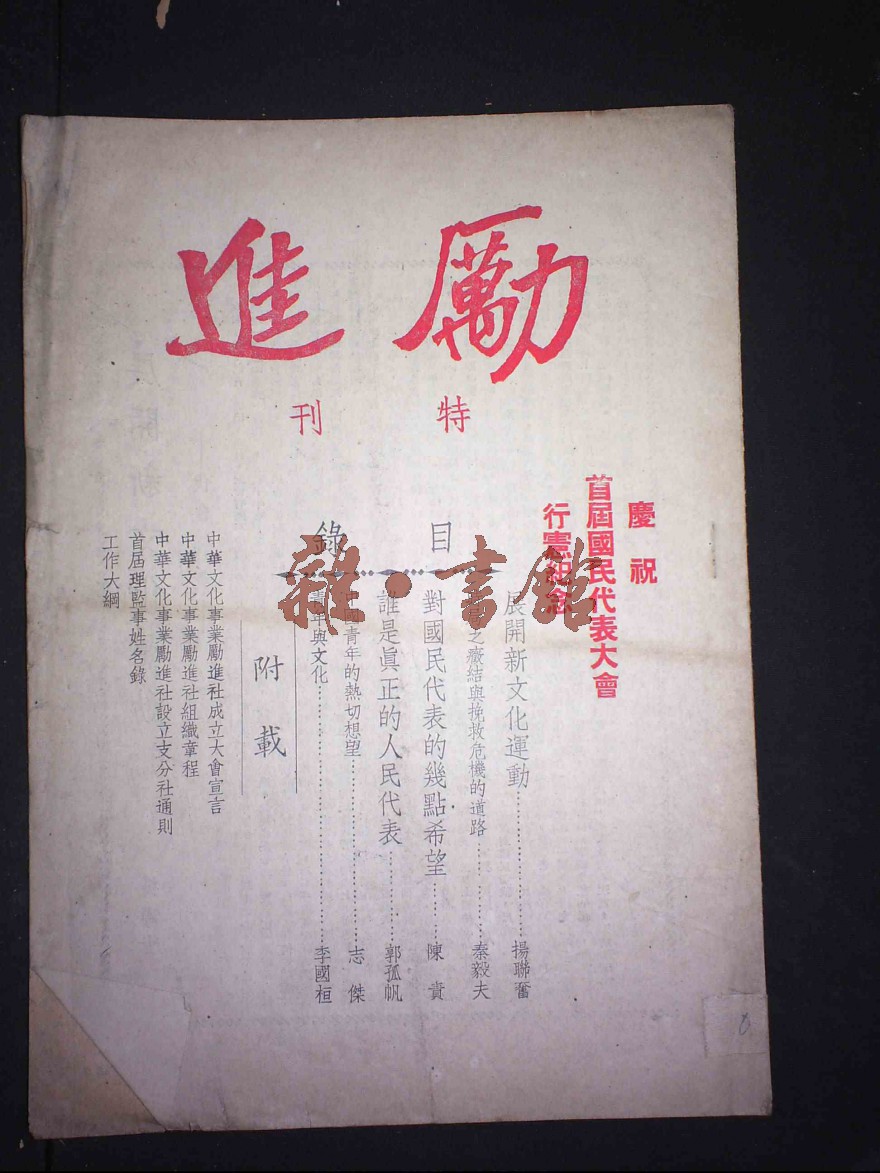 勵進
特刊
慶祝
首屆國民代表大會
行憲紀念
目錄
展開新文化運動 揚聯奮
之癥結與挽救危機的道路 秦毅夫
對國民代表的幾點希望 陳貴
誰是眞正的人民代表 郭孤帆
青年的熱切想望 志傑
青年與文化 李國桓
附載
中華文化事業勵進社成立大會宣言
中華文化事業勵進社組織章程
中華文化事業勵進社設立支分社通則
首屆理監事姓名錄
工作大綱
雜·書館